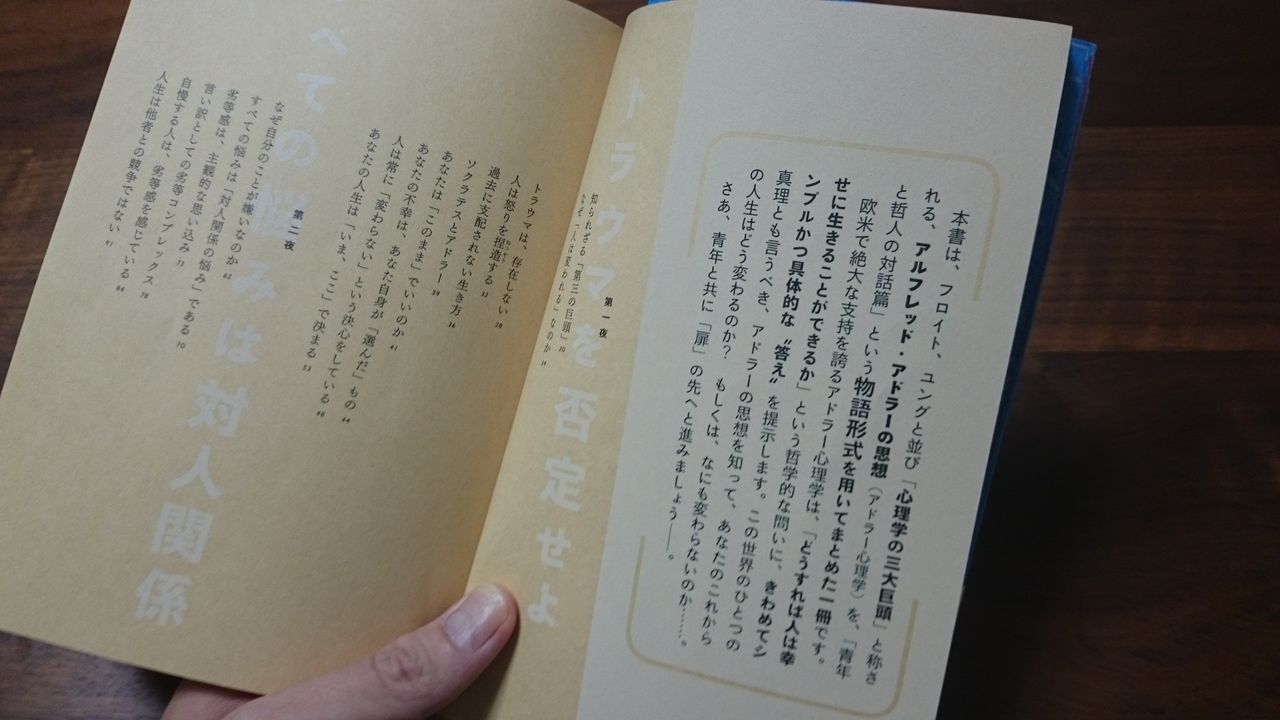 本書は、フロイト、ユングと並び「心理学の三大巨頭」と称さ
れる、アルフレッド・アドラーの思想（アドラー心理学）を、「青年
と哲人の対話篇」という物語形式を用いてまとめた一冊です。
欧米で絶大な支持を誇るアドラー心理学は、「どうすれば人は幸
せに生きることができるか」という哲学的な問いに、きわめてシ
ンプルかつ具体的な〝答え〟を提示します。この世界のひとつの
真理とも言うべき、アドラーの思想を知って、あなたのこれから
の人生はどう変わるのか？　もしくは、なにも変わらないのか……。
さあ、青年と共に「扉」の先へと進みましょう——。
トラウマを否定せよ
第一夜
知られざる「第三の巨頭」 20
なぜ「人は変われる」なのか 24
トラウマは、存在しない 28
人は怒りを捏造する 32
過去に支配されない生き方
ソクラテスとアドラー 39
あなたは「このまま」でいいのか 41
あなたの不幸は、あなた自身が「選んだ」もの 44
人は常に「変わらない」という決心をしている 48
あなたの人生は「いま、ここ」で決まる 53
べての悩みは対人関係
第二夜
なぜ自分のことが嫌いなのか 62
すべての悩みは「対人関係の悩み」である 70
劣等感は、主観的な思い込み 73
言い訳としての劣等コンプレックス 78
自慢する人は、劣等感を感じている 84
人生は他者との競争ではない 91